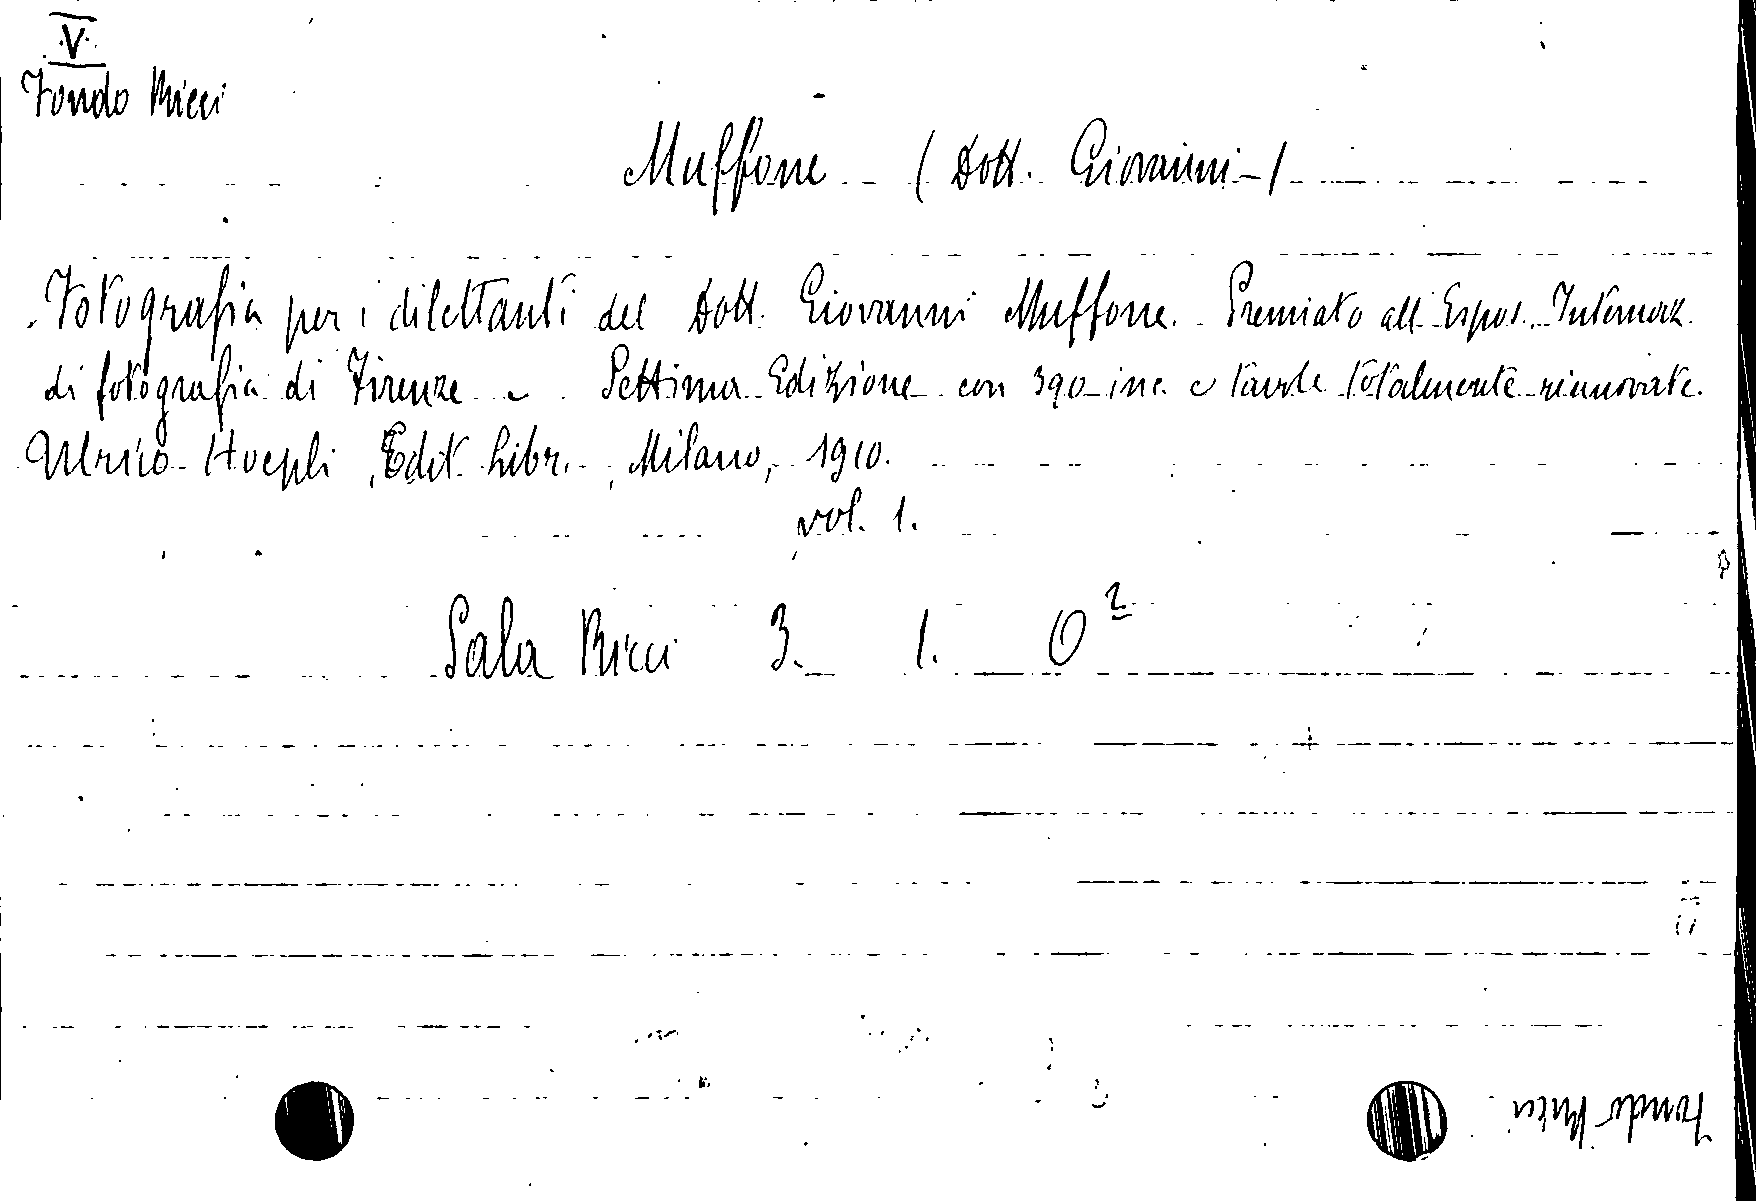 V
Fondo Ricci
Muffone (Dott. Giovanni-)
Fotografia per i dilettanti del Dott. Giovanni Muffone. Premiato all Espos. Internaz.
di fotografia di Firenze - Settima Edizione con 390 inc. e tavole totalmente rinnovate.
Ulrico Hoepli, Edit. Libr., Milano, 1910.
vol. 1.
Sala Ricci 3. 1. O²
Fondo Ricci